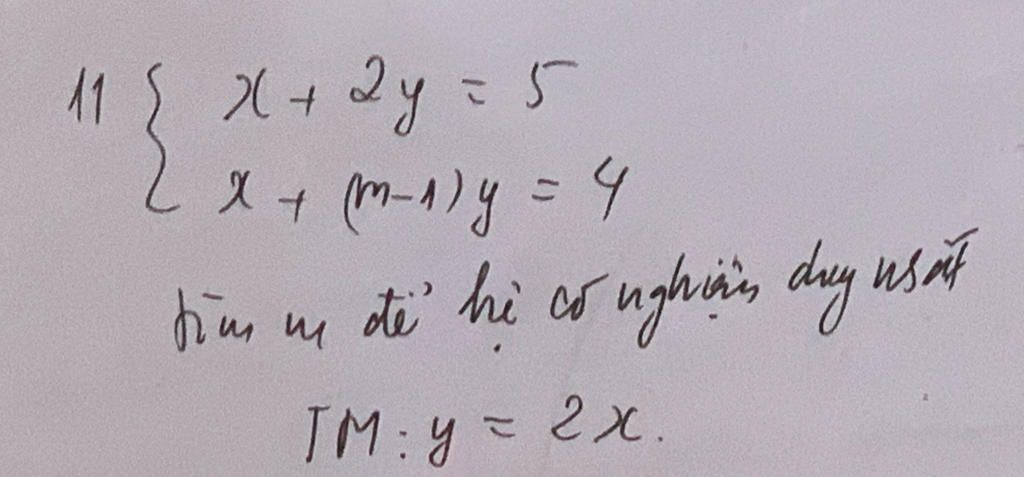 11 { x + 2y = 5
x + (m-1)y = 4
tìm m để hệ có nghiệm duy nhất
TM: y = 2x.